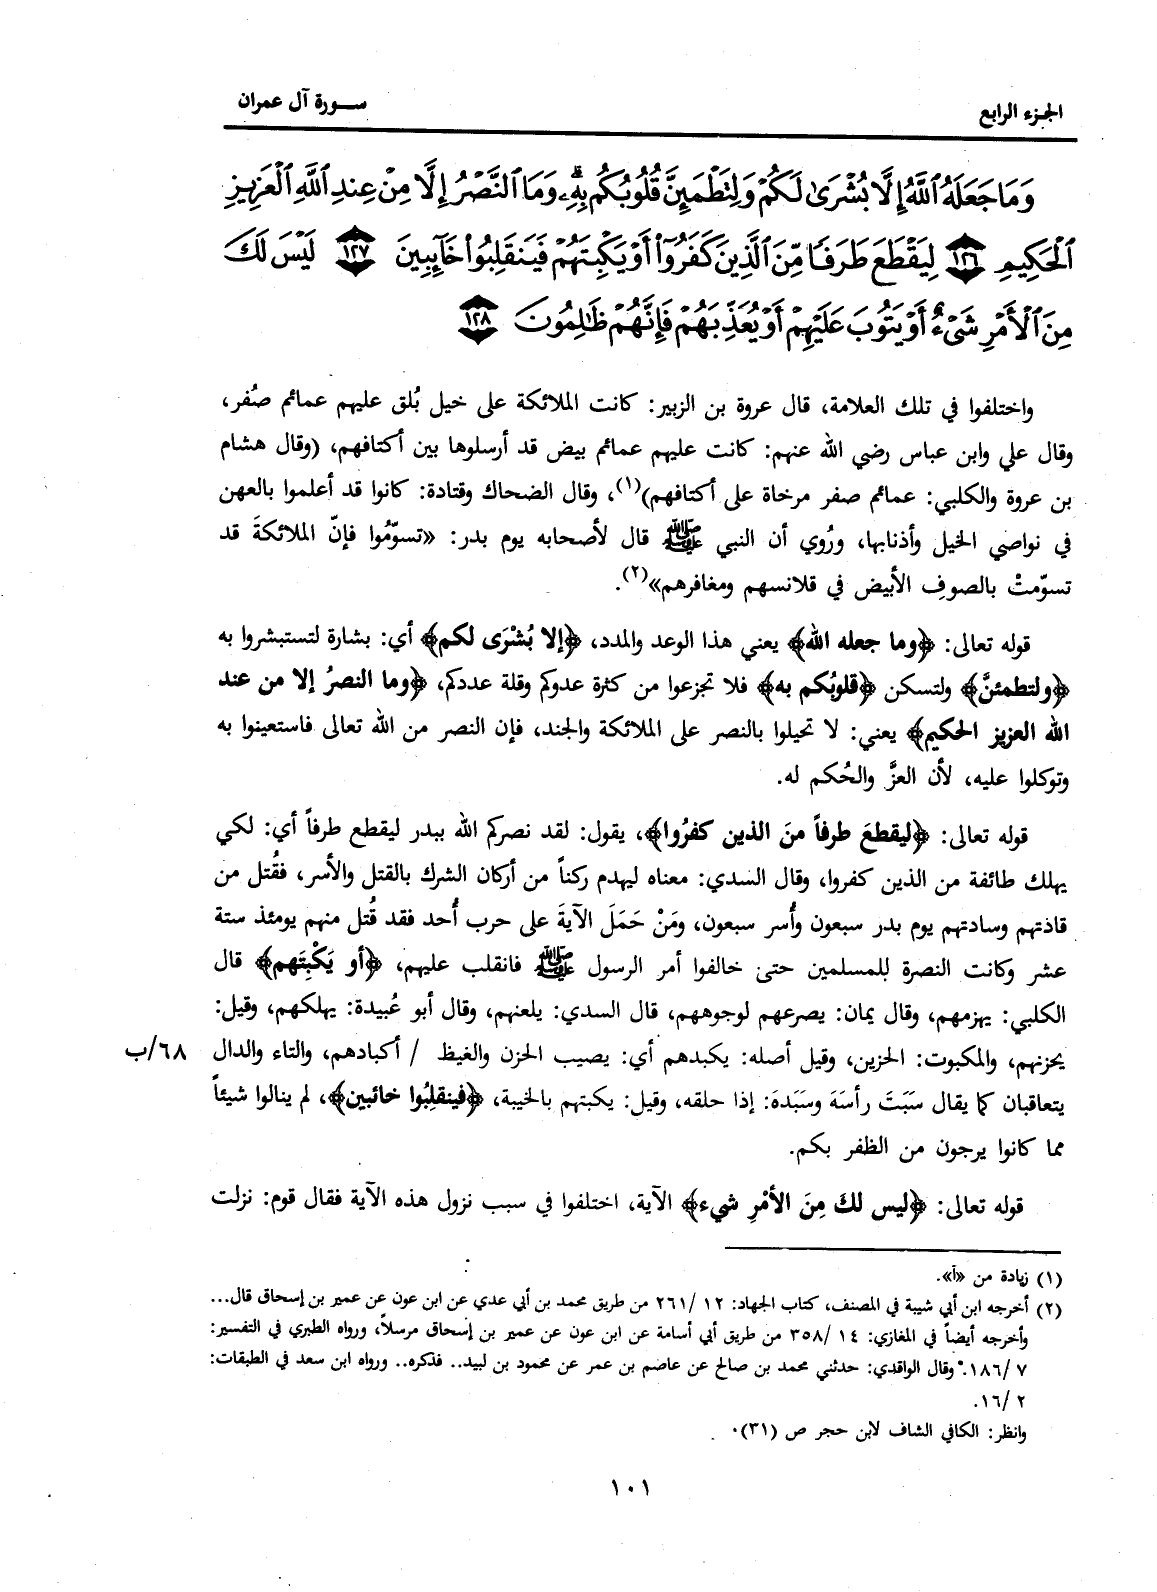 الجزء الرابع
سورة آل عمران
وَمَا جَعَلَهُ ٱللَّهُ إِلَّا بُشْرَىٰ لَكُمْ وَلِتَطْمَئِنَّ قُلُوبُكُم بِهِۦ وَمَا ٱلنَّصْرُ إِلَّا مِنْ عِندِ ٱللَّهِ ٱلْعَزِيزِ
ٱلْحَكِيمِ ١٢٦ لِيَقْطَعَ طَرَفًا مِّنَ ٱلَّذِينَ كَفَرُوٓا۟ أَوْ يَكْبِتَهُمْ فَيَنقَلِبُوا۟ خَآئِبِينَ ١٢٧ لَيْسَ لَكَ
مِنَ ٱلْأَمْرِ شَىْءٌ أَوْ يَتُوبَ عَلَيْهِمْ أَوْ يُعَذِّبَهُمْ فَإِنَّهُمْ ظَٰلِمُونَ ١٢٨
واختلفوا في تلك العلامة، قال عروة بن الزبير: كانت الملائكة على خيل بُلق عليهم عمائم صُفر،
وقال علي وابن عباس رضي الله عنهم: كانت عليهم عمائم بيض قد أرسلوها بين أكتافهم، (وقال هشام
بن عروة والكلبي: عمائم صفر مرخاة على أكتافهم)(١)، وقال الضحاك وقتادة: كانوا قد أعلموا بالعهن
في نواصي الخيل وأذنابها، ورُوي أن النبي ﷺ قال لأصحابه يوم بدر: «تسوّمُوا فإنّ الملائكةَ قد
تسوّمتْ بالصوفِ الأبيض في قلانسهم ومغافرهم»(٢).
قوله تعالى: ﴿وما جعله الله﴾ يعني هذا الوعد والمدد، ﴿إلا بُشْرَى لكم﴾ أي: بشارة لتستبشروا به
﴿ولتطمئنَّ﴾ ولتسكن ﴿قلوبُكم به﴾ فلا تجزعوا من كثرة عدوكم وقلة عددكم، ﴿وما النصرُ إلا من عند
الله العزيز الحكيم﴾ يعني: لا تحيلوا بالنصر على الملائكة والجند، فإن النصر من الله تعالى فاستعينوا به
وتوكلوا عليه، لأن العزَّ والحُكم له.
قوله تعالى: ﴿ليقطعَ طرفاً منَ الذين كفرُوا﴾، يقول: لقد نصركم الله ببدر ليقطع طرفاً أي: لكي
يهلك طائفة من الذين كفروا، وقال السدي: معناه ليهدم ركناً من أركان الشرك بالقتل والأسر، فقُتل من
قادتهم وسادتهم يوم بدر سبعون وأُسر سبعون، ومَنْ حَمَلَ الآيةَ على حرب أُحد فقد قُتل منهم يومئذ ستة
عشر وكانت النصرة للمسلمين حتى خالفوا أمر الرسول ﷺ فانقلب عليهم، ﴿أو يَكْبِتَهم﴾ قال
الكلبي: يهزمهم، وقال يمان: يصرعهم لوجوههم، قال السدي: يلعنهم، وقال أبو عُبيدة: يهلكهم، وقيل:
يحزنهم، والمكبوت: الحزين، وقيل أصله: يكبدهم أي: يصيب الحزن والغيظ / أكبادهم، والتاء والدال ٦٨/ب
يتعاقبان كما يقال سَبَتَ رأسَهَ وسَبَدهَ: إذا حلقه، وقيل: يكبتهم بالخيبة، ﴿فينقلِبُوا خائبين﴾، لم ينالوا شيئاً
مما كانوا يرجون من الظفر بكم.
قوله تعالى: ﴿ليس لكَ مِنَ الأمْرِ شيء﴾ الآية، اختلفوا في سبب نزول هذه الآية فقال قوم: نزلت
(١) زيادة من «أ».
(٢) أخرجه ابن أبي شيبة في المصنف، كتاب الجهاد: ١٢ /٢٦١ من طريق محمد بن أبي عدي عن ابن عون عن عمير بن إسحاق قال...
وأخرجه أيضاً في المغازي: ١٤ /٣٥٨ من طريق أبي أسامة عن ابن عون عن عمير بن إسحاق مرسلاً، ورواه الطبري في التفسير:
٧ /١٨٦. وقال الواقدي: حدثني محمد بن صالح عن عاصم بن عمر عن محمود بن لبيد.. فذكره.. ورواه ابن سعد في الطبقات:
٢ /١٦.
وانظر: الكافي الشاف لابن حجر ص (٣١).
١٠١